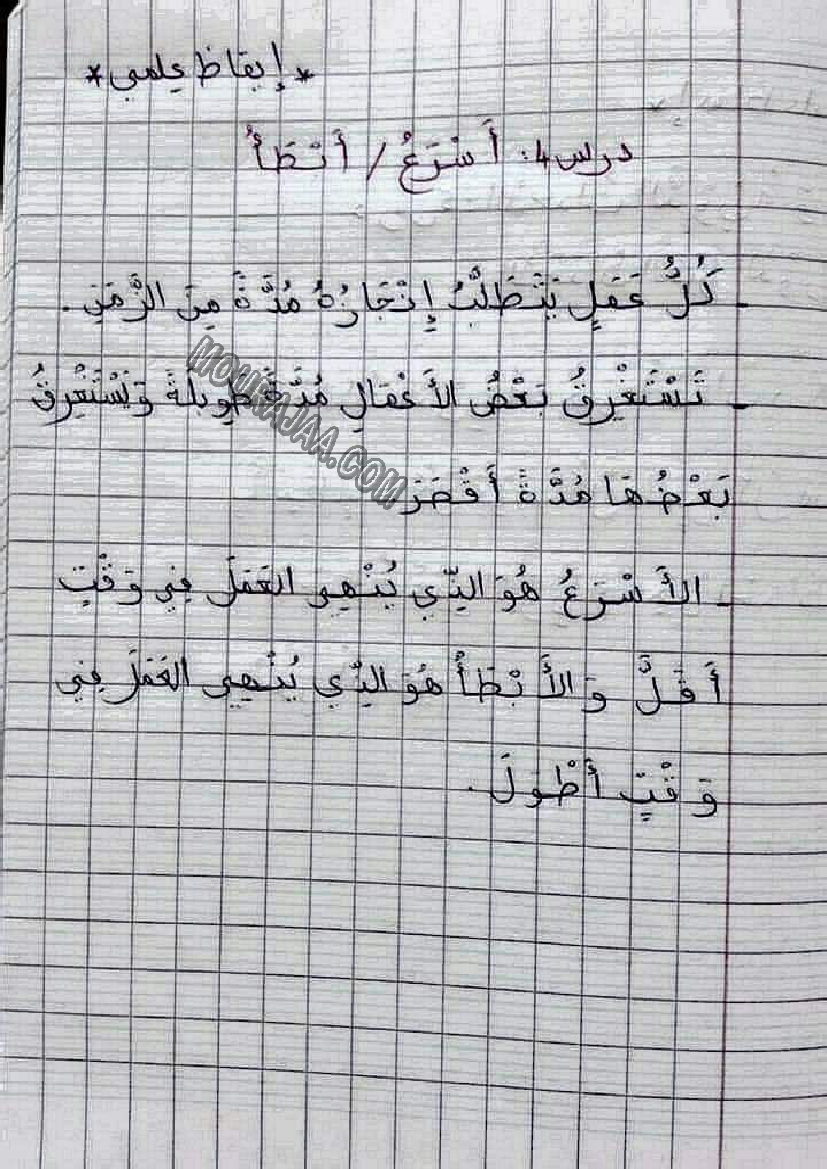 * إيقاظ علمي *
درس 4: أَسْرَعُ / أَبْطَأُ
- كُلُّ عَمَلٍ يَتَطَلَّبُ إِنْجَازُهُ مُدَّةً مِنَ الزَّمَنِ.
- تَسْتَغْرِقُ بَعْضُ الأَعْمَالِ مُدَّةً طَوِيلَةً وَيَسْتَغْرِقُ
بَعْضُهَا مُدَّةً أَقْصَرَ
- الأَسْرَعُ هُوَ الذِّي يُنْهِي العَمَلَ فِي وَقْتٍ
أَقَلَّ وَالأَبْطَأُ هُوَ الذِّي يُنْهِي العَمَلَ فِي
وَقْتٍ أَطْوَلَ.
MOURAJAA.COM